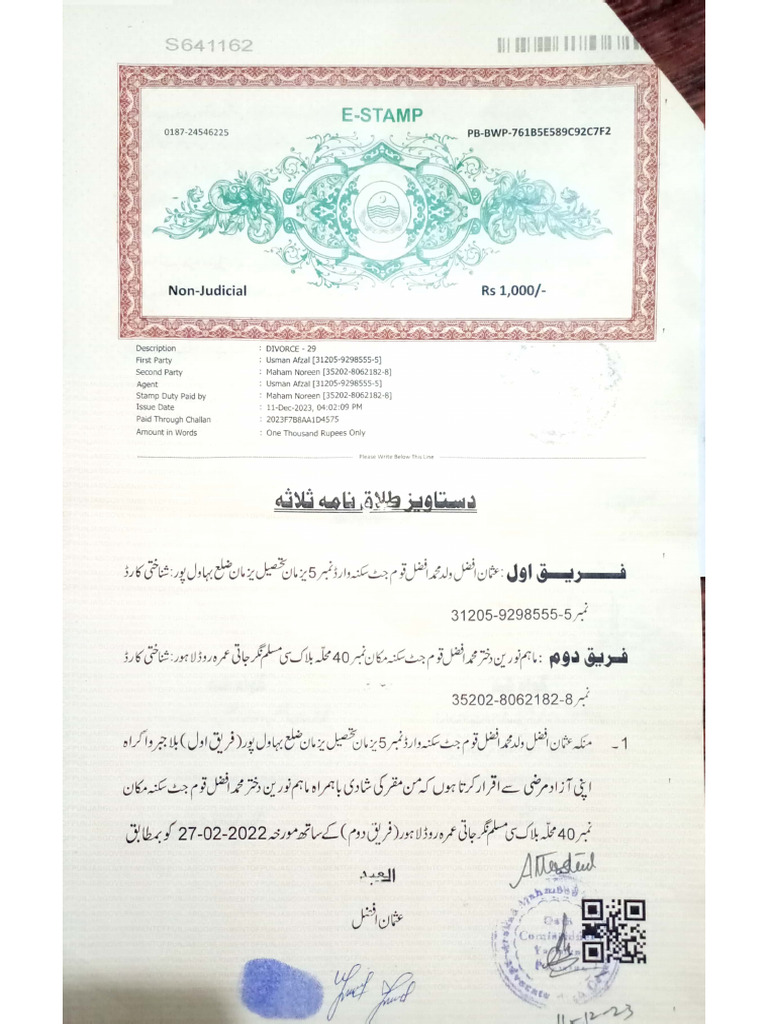 S641162
E-STAMP
0187-24546225
PB-BWP-761B5E589C92C7F2
Non-Judicial
Rs 1,000/-
Description : DIVORCE - 29
First Party : Usman Afzal [31205-9298555-5]
Second Party : Maham Noreen [35202-8062182-8]
Agent : Usman Afzal [31205-9298555-5]
Stamp Duty Paid by : Maham Noreen [35202-8062182-8]
Issue Date : 11-Dec-2023, 04:02:09 PM
Paid Through Challan : 2023F7B8AA1D4575
Amount in Words : One Thousand Rupees Only
Please Write Below This Line
دستاویز طلاق نامہ ثلاثہ
فریق اول : عثمان افضل ولد محمد افضل قوم جٹ سکنہ وارڈ نمبر 5 یزمان تحصیل یزمان ضلع بہاول پور : شناختی کارڈ
نمبر 31205-9298555-5
فریق دوم : ماہم نورین دختر محمد افضل قوم جٹ سکنہ مکان نمبر 40 محلہ بلاک سی مسلم نگر جاتی عمرہ روڈ لاہور : شناختی کارڈ
نمبر 35202-8062182-8
1۔ منکہ عثمان افضل ولد محمد افضل قوم جٹ سکنہ وارڈ نمبر 5 یزمان تحصیل یزمان ضلع بہاول پور (فریق اول) بلا جبر و اکراہ
اپنی آزاد مرضی سے اقرار کرتا ہوں کہ من مقر کی شادی باہمراہ ماہم نورین دختر محمد افضل قوم جٹ سکنہ مکان
نمبر 40 محلہ بلاک سی مسلم نگر جاتی عمرہ روڈ لاہور (فریق دوم) کے ساتھ مورخہ 27-02-2022 کو بمطابق
العبد
عثمان افضل
Attested
Arshad Mahmood
Oath
Commissioner
Advocate
11-12-23